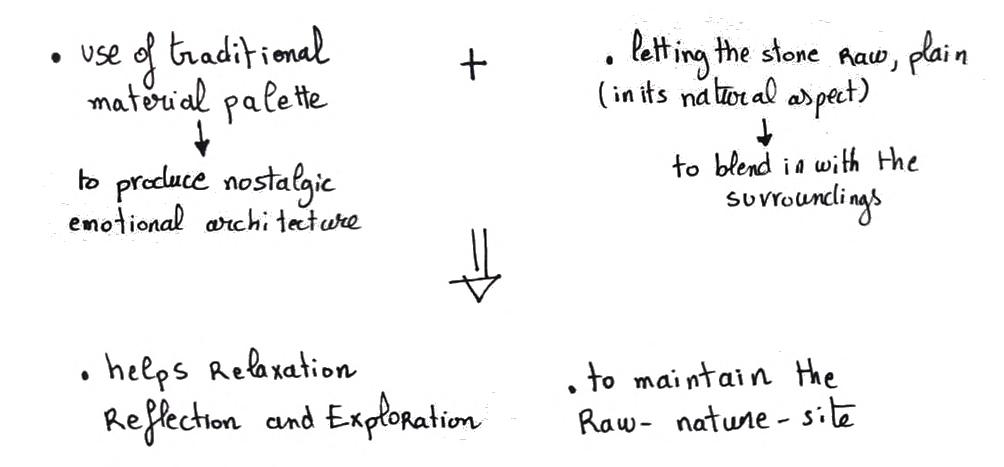 • use of traditional
material palette
+
• letting the stone Raw, plain
(in its natural aspect)
to produce nostalgic
emotional architecture
to blend in with the
surroundings
• helps Relaxation
Reflection and Exploration
• to maintain the
Raw- nature - site